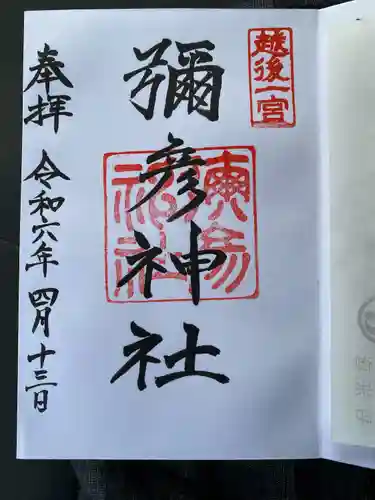 越後一宮
彌彦神社
奉拝
令和六年四月十三日
彌彦神社
御朱印